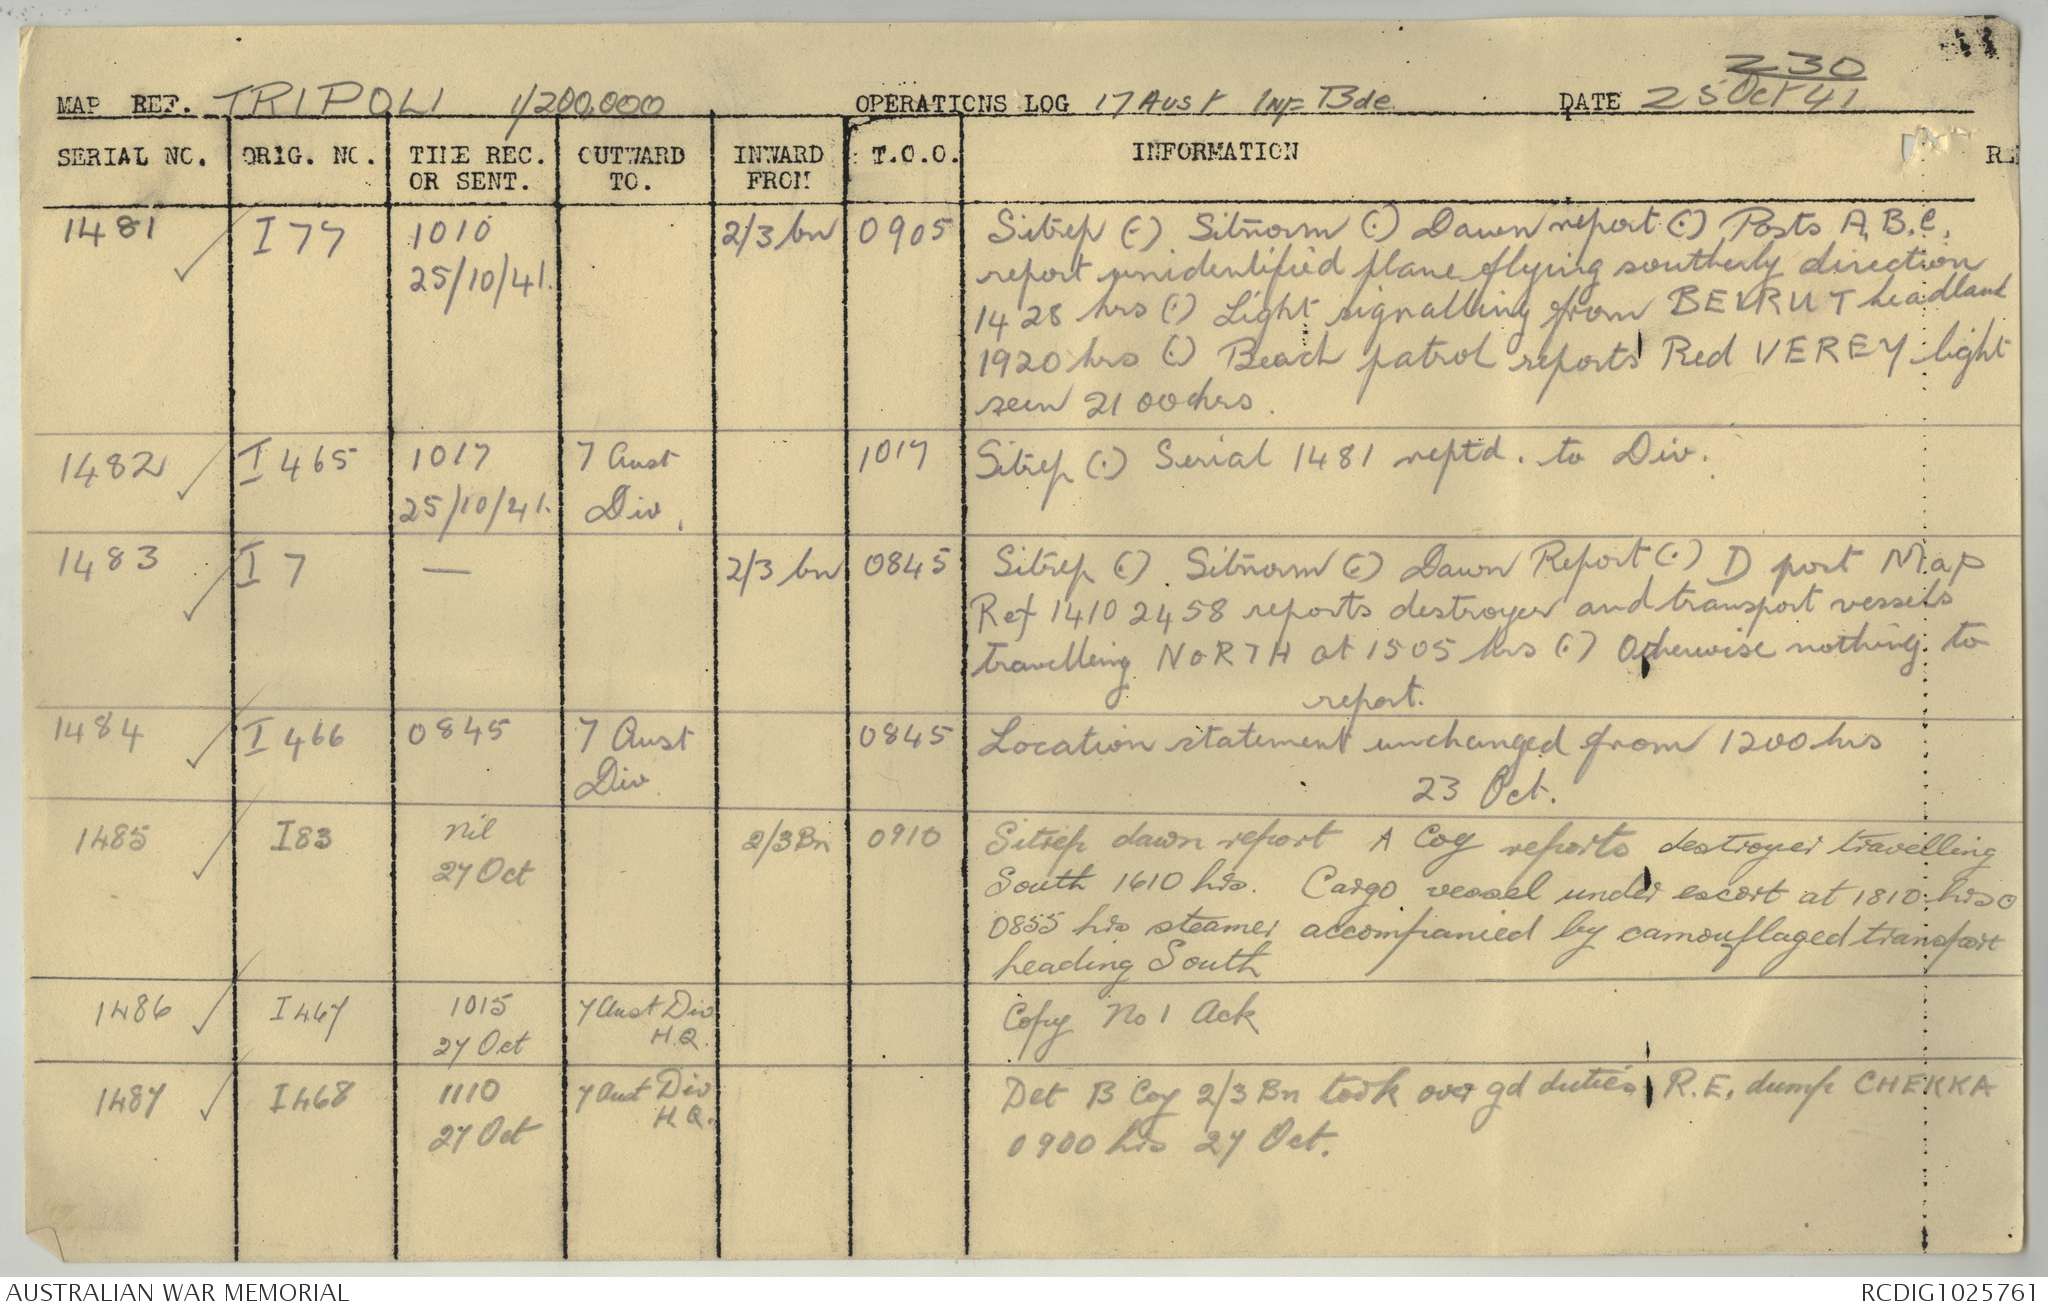 230
MAP REF. TRIPOLI 1/200,000 OPERATIONS LOG 17 Aust Inf Bde DATE 25 Oct 41
SERIAL NO. ORIG. NO. TIME REC. OR SENT. OUTWARD TO. INWARD FROM T.O.O. INFORMATION
1481 I 77 1010 2/3 bn 0905 Sitrep (.) Sitnorm (.) Dawn report (.) Posts A, B, C,
25/10/41. report unidentified plane flying southerly direction
1428 hrs (.) Light signalling from BEIRUT headland
1920 hrs (.) Beach patrol reports Red VEREY light
seen 2100 hrs.
1482 I 465 1017 7 Aust 1017 Sitrep (.) Serial 1481 reptd. to Div.
25/10/41. Div.
1483 I 7 — 2/3 bn 0845 Sitrep (.) Sitnorm (.) Dawn Report (.) D port Map
Ref 14102458 reports destroyer and transport vessels
travelling NORTH at 1505 hrs (.) Otherwise nothing to
report.
1484 I 466 0845 7 Aust 0845 Location statement unchanged from 1200 hrs
Div 23 Oct.
1485 I83 Nil 2/3 Bn 0910 Sitrep dawn report A Coy reports destroyer travelling
27 Oct South 1610 hrs. Cargo vessel under escort at 1810 hrs
0855 hrs steamer accompanied by camouflaged transport
heading South
1486 I467 1015 7 Aust Div Copy No 1 Ack
27 Oct H.Q.
1487 I468 1110 7 Aust Div Det B Coy 2/3 Bn took over gd duties R.E. dump CHEKKA
27 Oct H.Q. 0900 hrs 27 Oct.
AUSTRALIAN WAR MEMORIAL RCDIG1025761